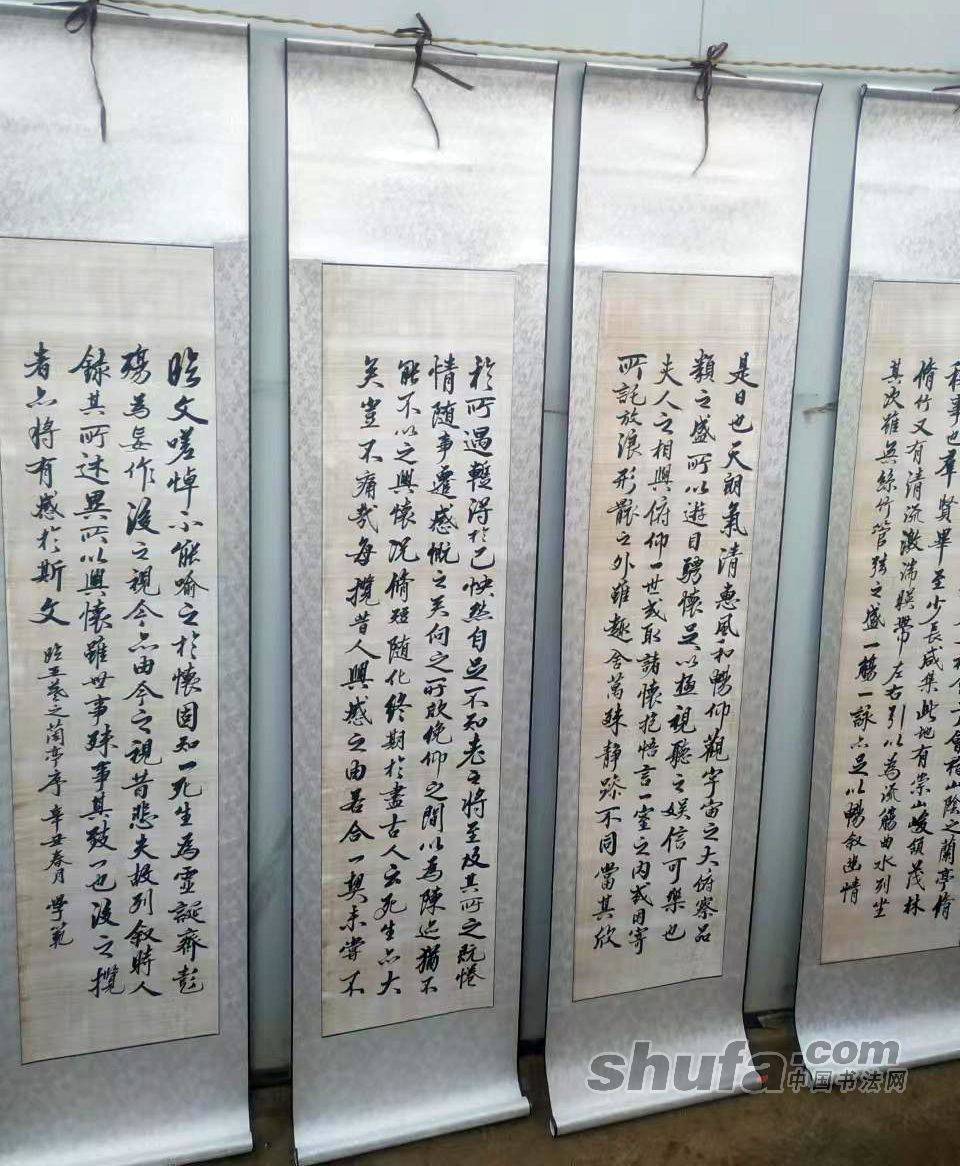 稧事也羣賢畢至少長咸集此地有崇山峻領茂林
脩竹又有清流激湍暎帶左右引以為流觴曲水列坐
其次雖無絲竹管弦之盛一觴一詠亦足以暢叙幽情
是日也天朗氣清惠風和暢仰觀宇宙之大俯察品
類之盛所以遊目騁懷足以極視聽之娱信可樂也
夫人之相與俯仰一世或取諸懷抱悟言一室之内或因寄
所託放浪形骸之外雖趣舍萬殊静躁不同當其欣
於所遇暫得於己怏然自足不知老之將至及其所之既惓
情随事遷感慨之矣向之所欣俛仰之間以為陳迹猶不
能不以之興懷況脩短随化終期於盡古人云死生亦大
矣豈不痛哉每攬昔人興感之由若合一契未嘗不
臨文嗟悼不能喻之於懷固知一死生為虚誕齊彭
殤為妄作後之視今亦由今之視昔悲夫故列叙時人
録其所述雖世殊事異所以興懷其致一也後之攬
者亦將有感於斯文
臨王羲之蘭亭序 辛丑春月 學範
shufa.com
中国书法网